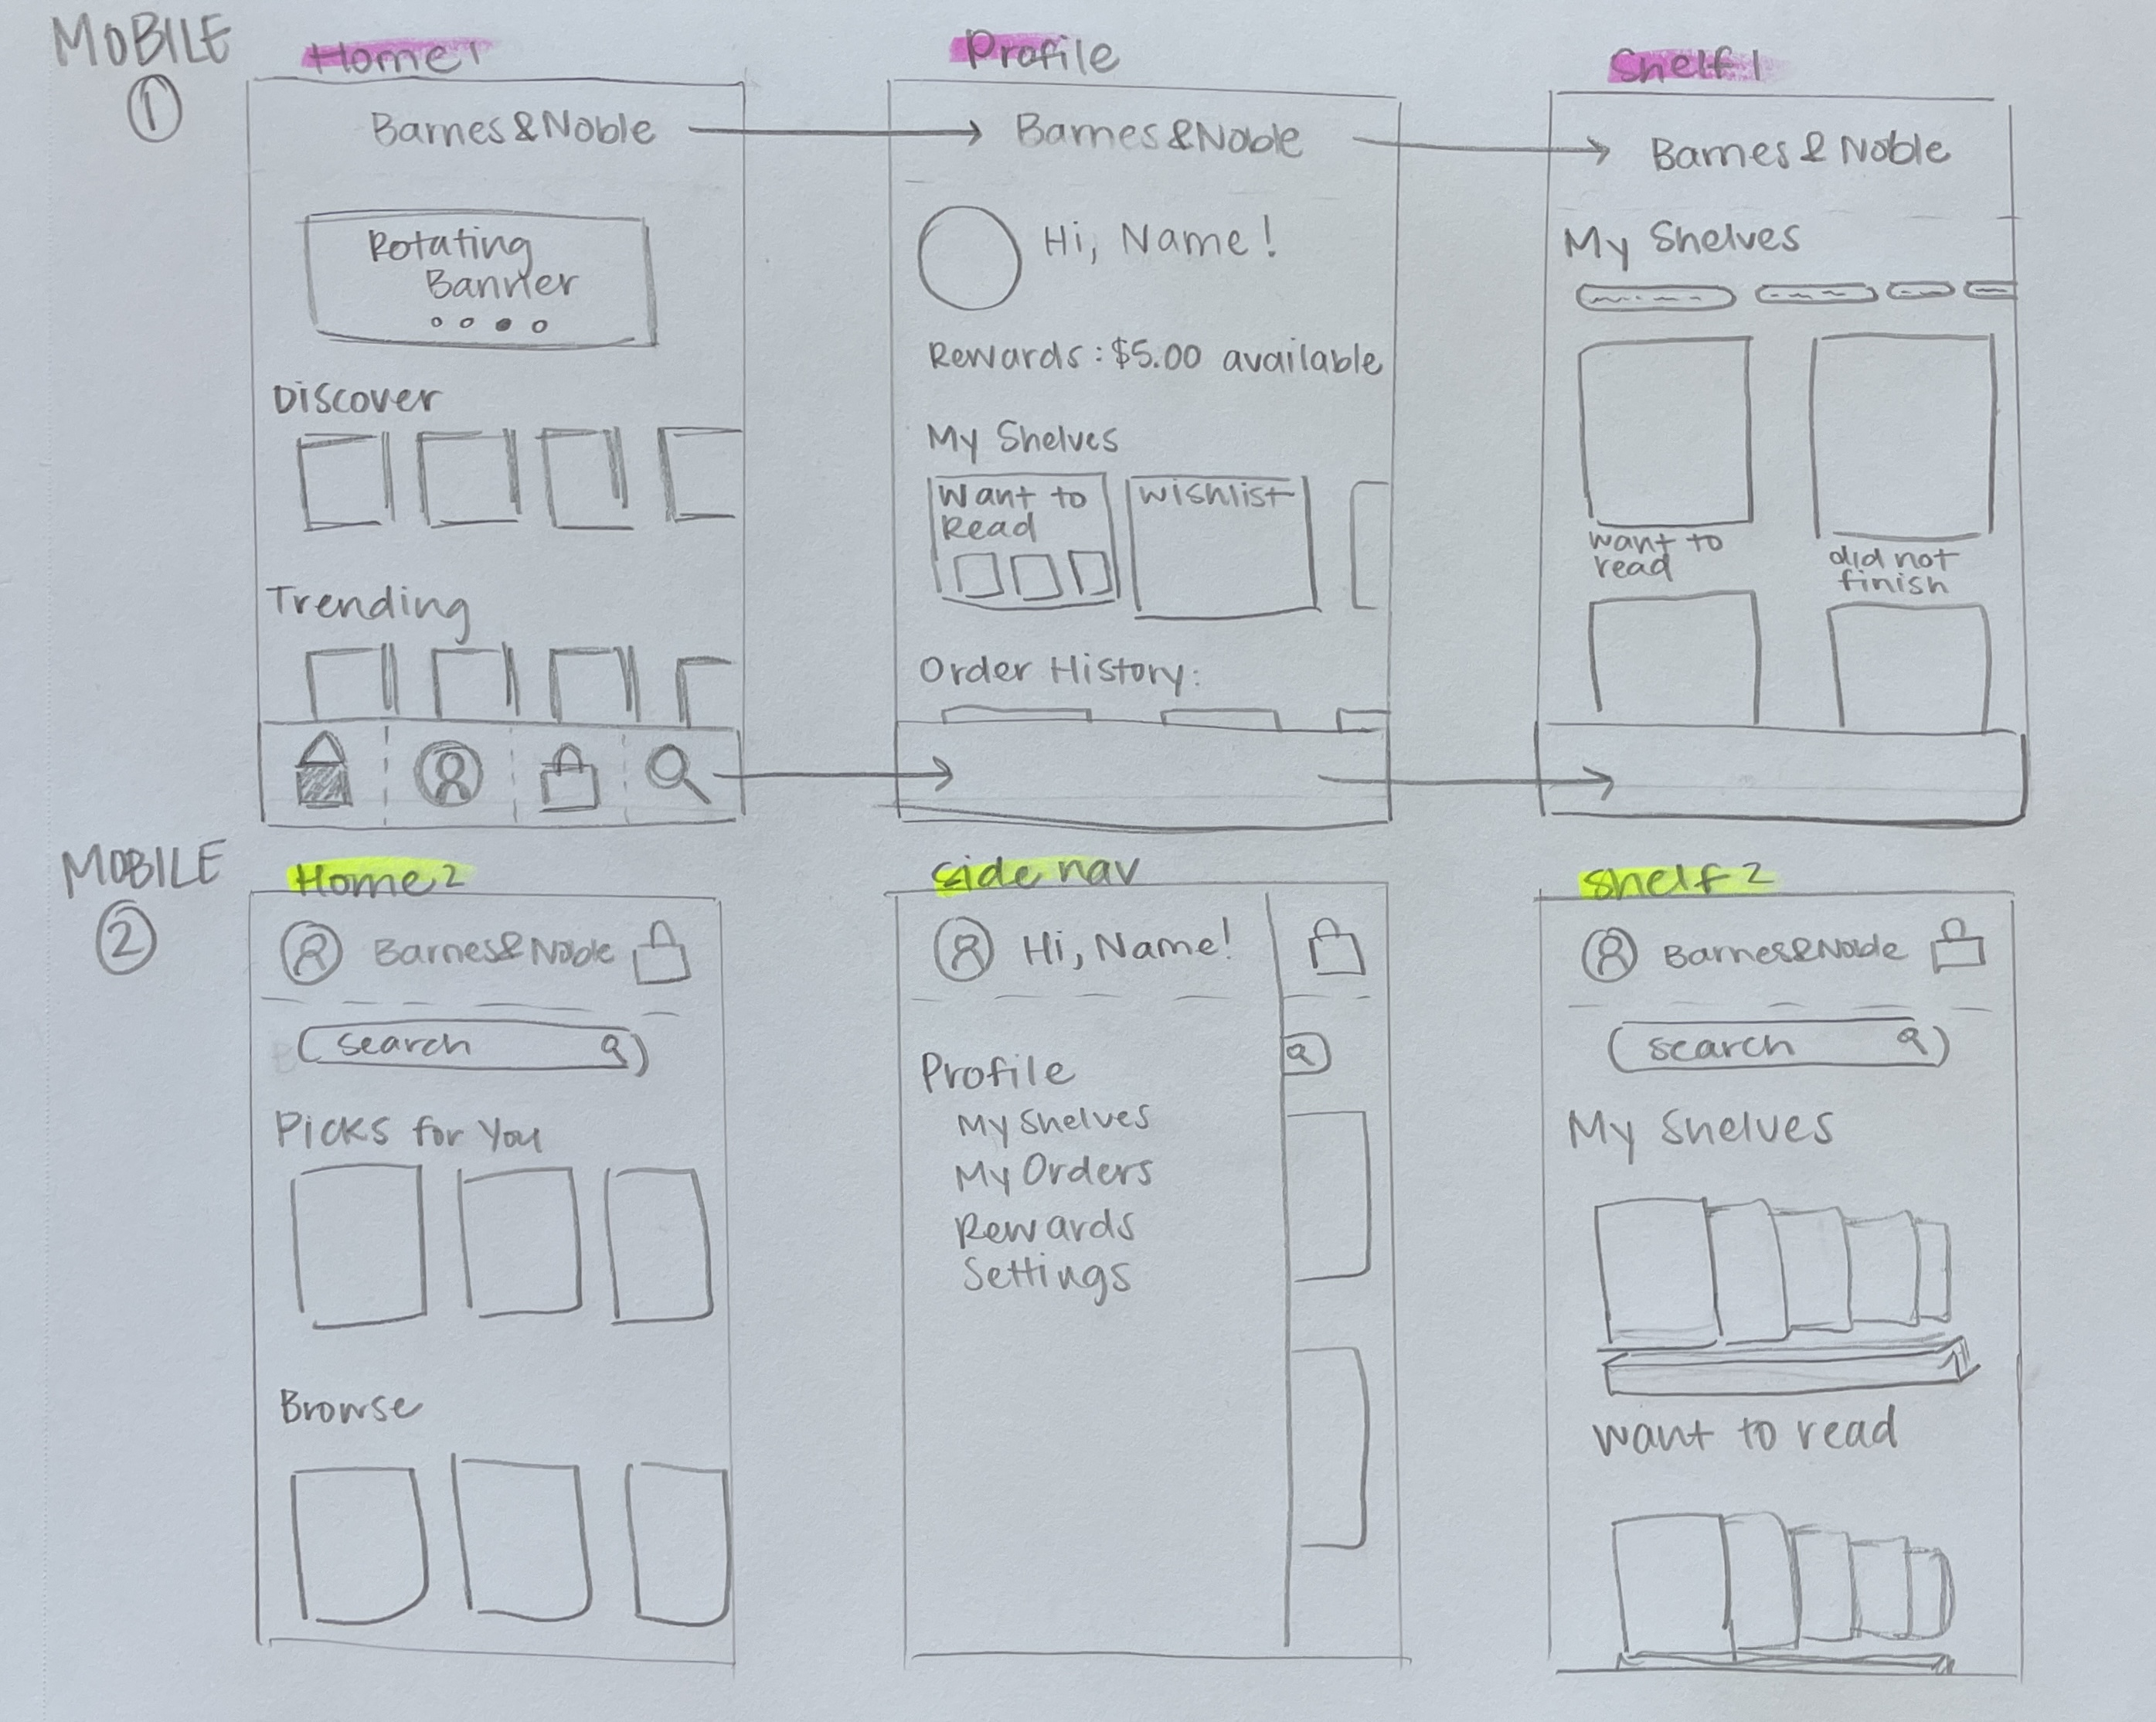 MOBILE
①
Home 1
Barnes&Noble
Rotating
Banner
Discover
Trending
Profile
Barnes&Noble
Hi, Name!
Rewards: $5.00 available
My Shelves
Want to
Read
wishlist
Order History:
Shelf 1
Barnes & Noble
My Shelves
want to
read
did not
finish
MOBILE
②
Home 2
Barnes&Noble
search
Picks for You
Browse
side nav
Hi, Name!
Profile
My Shelves
My Orders
Rewards
Settings
Shelf 2
Barnes&Noble
search
My Shelves
want to read